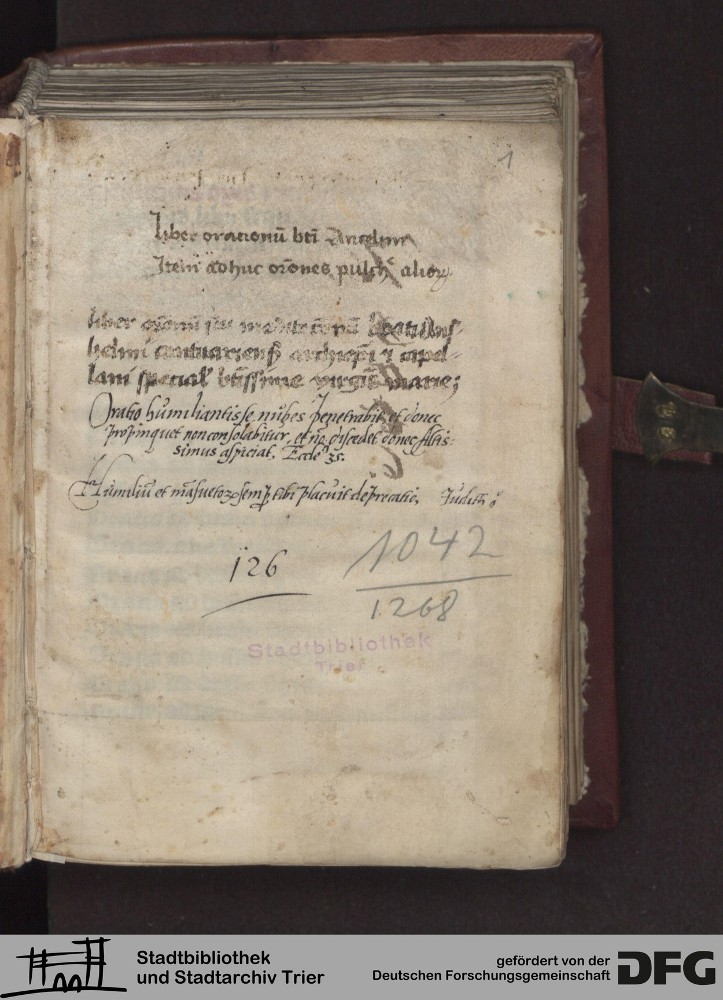 1
liber orationū bti Anselmi
Item adhuc orōnes pulch alior
liber orōnū seu meditacōnū beati Ans-
helmi cantuariensis archiepi et capel-
lani special btissime virgis marie;
Oratio humiliantis se nubes penetrabit, et donec
propinquet non consolabitur, et nō discedet donec altis-
simus aspiciat. Eccle 35.
Humiliū et māsuetor semp tibi placuit deprecatio, Judith 9
126
1042
1268
Stadtbibliothek
Trier
Stadtbibliothek
und Stadtarchiv Trier
gefördert von der
Deutschen Forschungsgemeinschaft
DFG